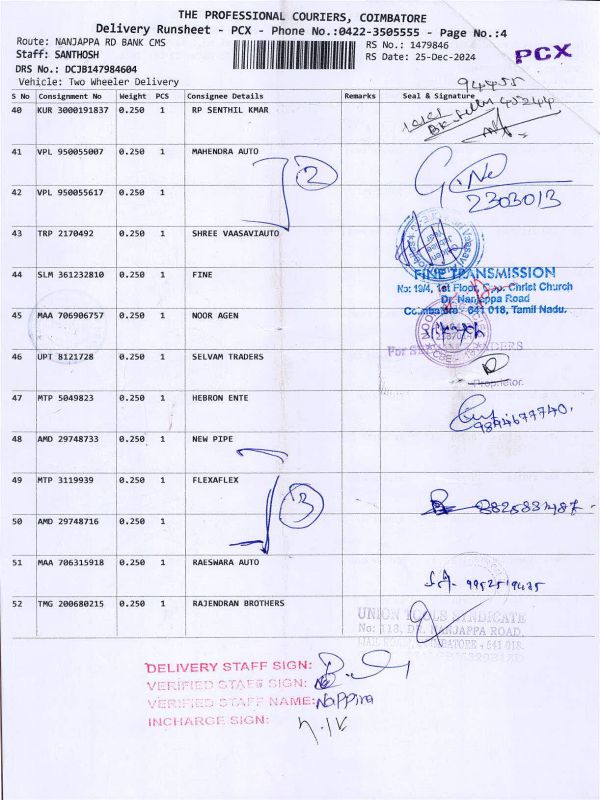 THE PROFESSIONAL COURIERS, COIMBATORE
Delivery Runsheet - PCX - Phone No.:0422-3505555 - Page No.:4
Route: NANJAPPA RD BANK CMS
RS No.: 1479846
Staff: SANTHOSH
RS Date: 25-Dec-2024
PCX
DRS No.: DCJB147984604
Vehicle: Two Wheeler Delivery
94455
S No Consignment No Weight PCS Consignee Details Remarks Seal & Signature
40 KUR 3000191837 0.250 1 RP SENTHIL KMAR
41 VPL 950055007 0.250 1 MAHENDRA AUTO
2
2303013
42 VPL 950055617 0.250 1
43 TRP 2170492 0.250 1 SHREE VAASAVIAUTO
44 SLM 361232810 0.250 1 FINE
FINE TRANSMISSION
No: 19/4, 1st Floor, C.S.I. Christ Church
Dr. Nanjappa Road
Coimbatore - 641 018, Tamil Nadu.
45 MAA 706906757 0.250 1 NOOR AGEN
46 UPT 8121728 0.250 1 SELVAM TRADERS
Proprietor.
47 MTP 5049823 0.250 1 HEBRON ENTE
9894677740.
48 AMD 29748733 0.250 1 NEW PIPE
49 MTP 3119939 0.250 1 FLEXAFLEX
3
8825883487
50 AMD 29748716 0.250 1
51 MAA 706315918 0.250 1 RAESWARA AUTO
52 TMG 200680215 0.250 1 RAJENDRAN BROTHERS
UNION TOOLS SYNDICATE
No: 118, DR. NANJAPPA ROAD,
COIMBATORE - 641 018.
DELIVERY STAFF SIGN:
VERIFIED STAFF SIGN:
VERIFIED STAFF NAME: Nappira
INCHARGE SIGN: